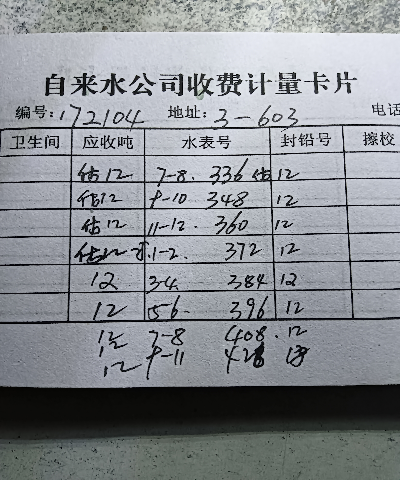 自来水公司收费计量卡片
编号: 172104 地址: 3-603 电话
卫生间 应收吨 水表号 封铅号 擦校
估12 7-8. 336 估 12
估12 9-10 348 12
估12 11-12. 360 12
估12 1-2. 372 12
12 3-4. 384 12
12 5-6. 396 12
12 7-8 408. 12
12 9-11